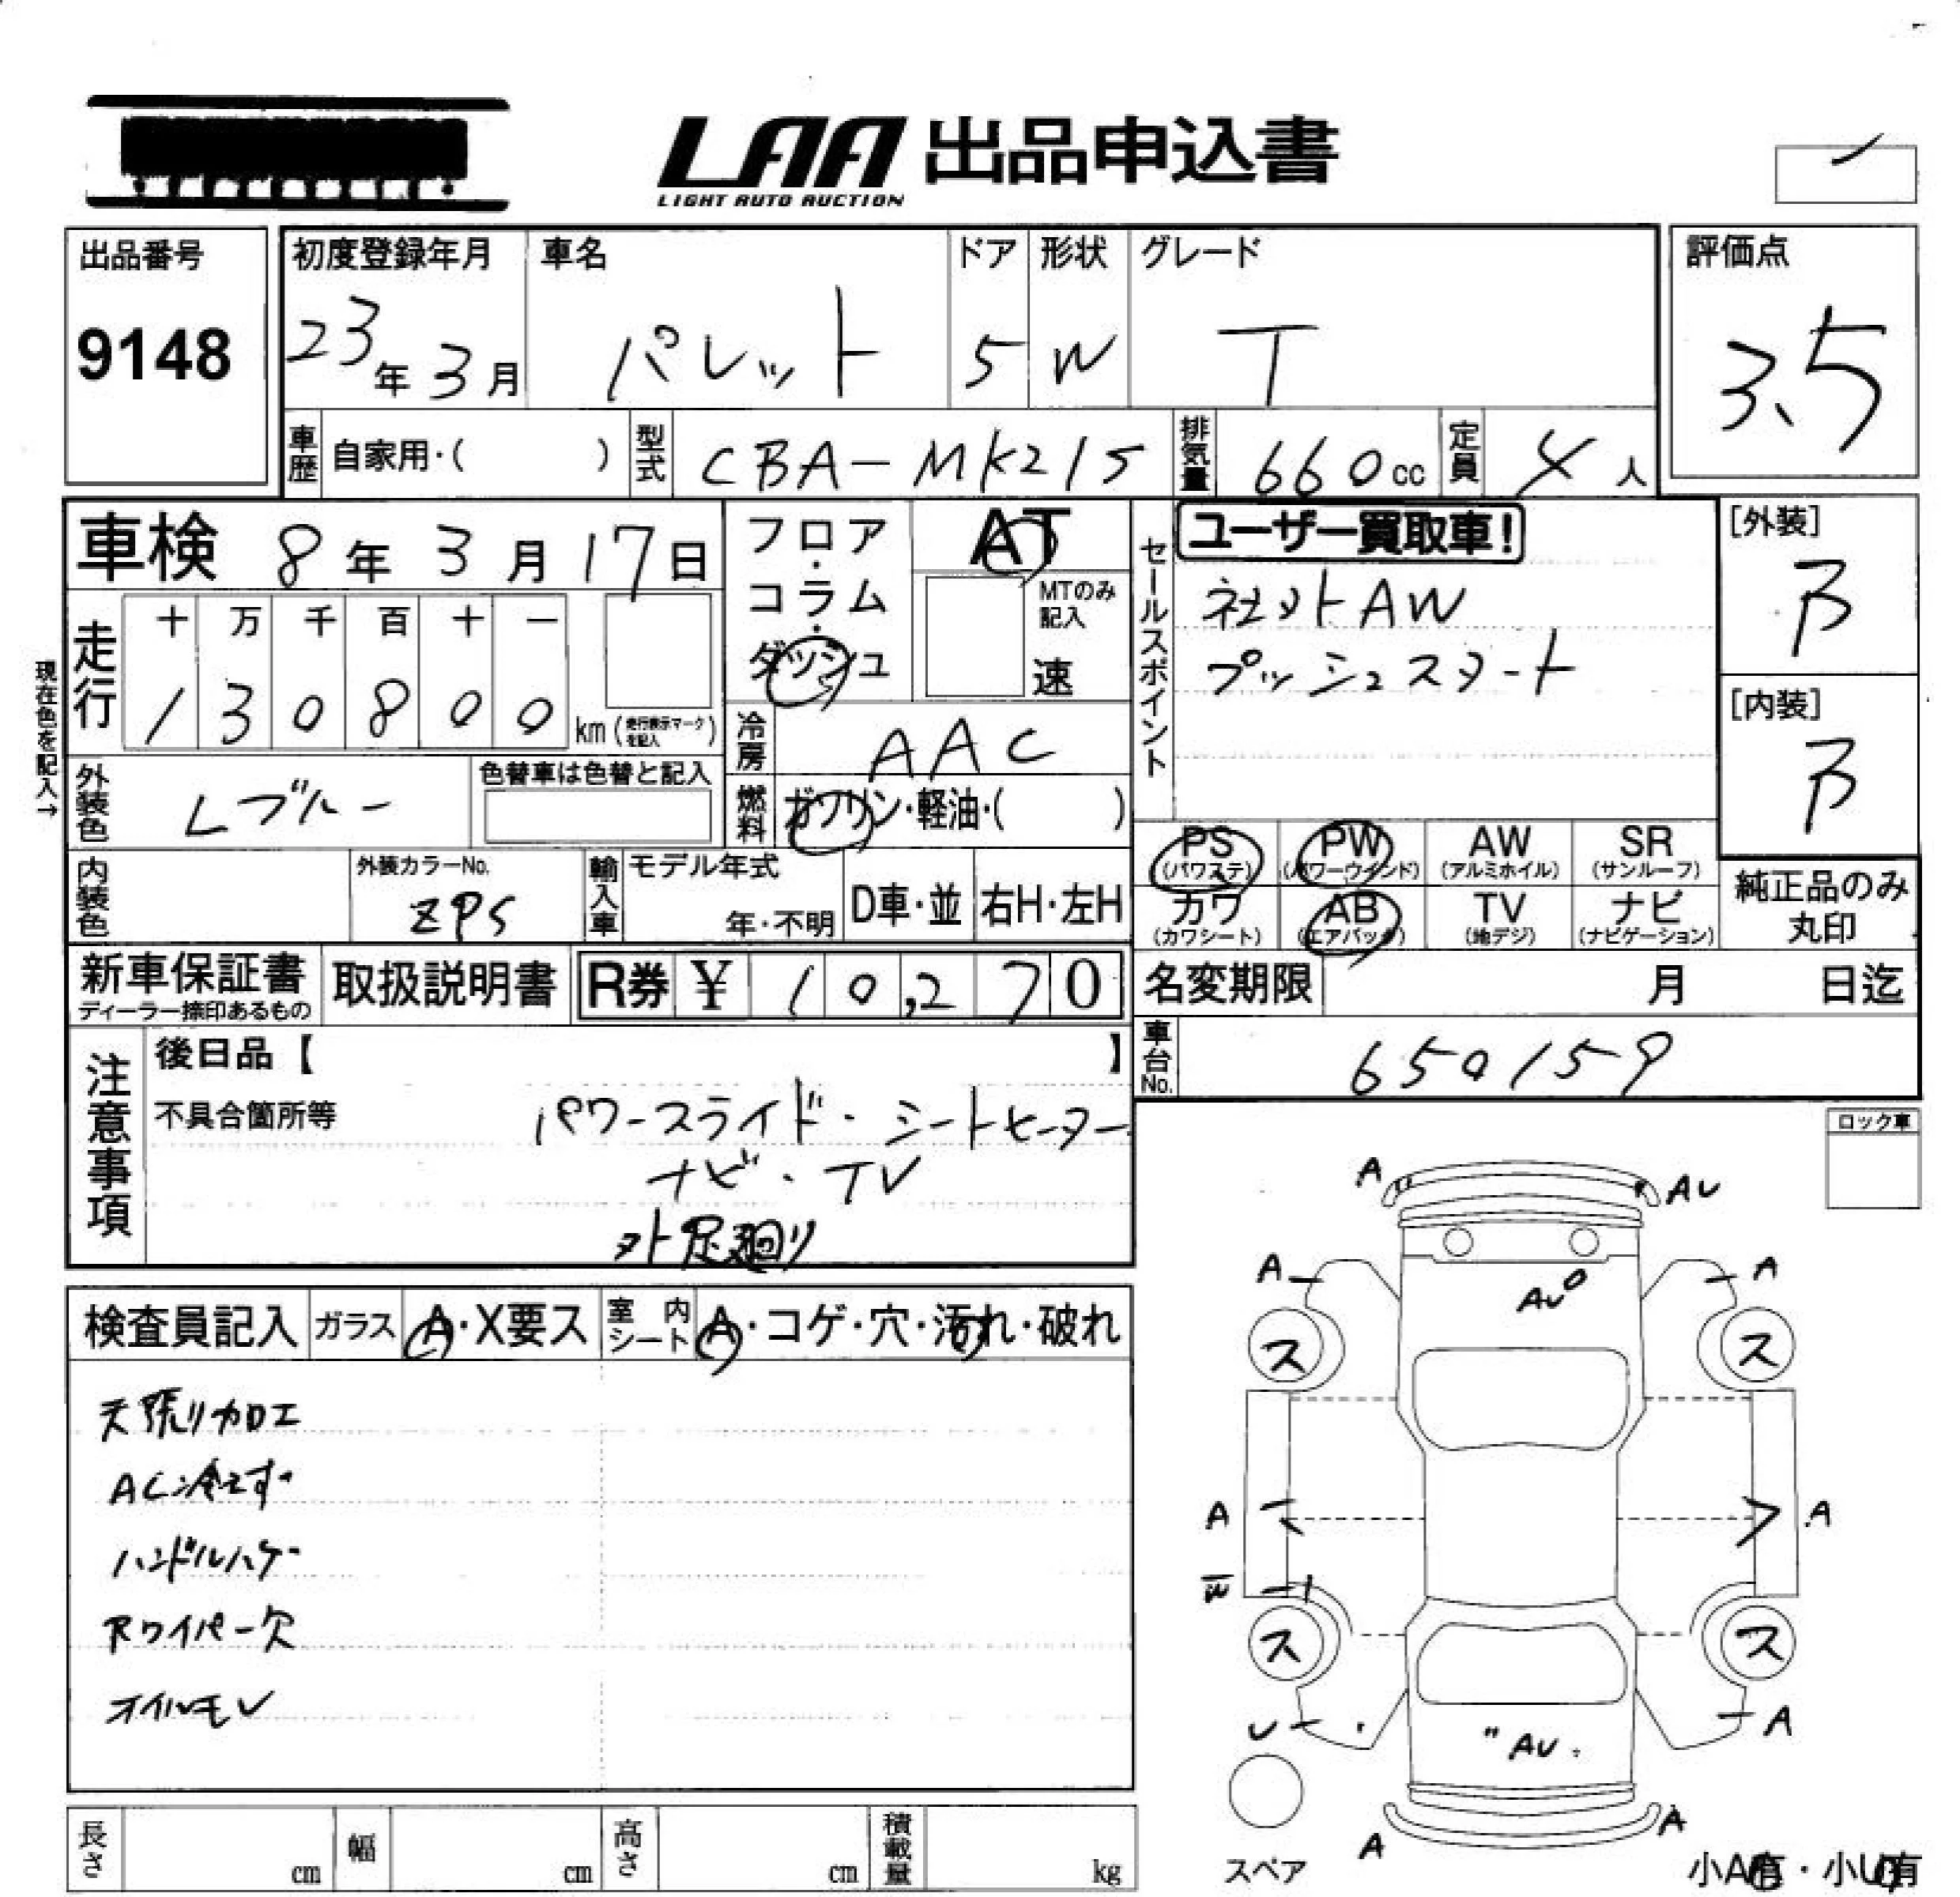 LAA 出品申込書
LIGHT AUTO AUCTION
出品番号
9148
初度登録年月
23年3月
車名
パレット
ドア
5
形状
W
グレード
T
評価点
3.5
車歴 自家用・( )
型式 CBA-MK21S
排気量 660cc
定員 4人
車検 8年3月17日
フロア・コラム・ダッシュ
AT
MTのみ記入
速
セールスポイント
ユーザー買取車!
社外AW
プッシュスタート
[外装]
B
[内装]
B
現在色を記入→
走行
十 万 千 百 十 一
1 3 0 8 0 0 km (走行表示マークを記入)
冷房 AAC
燃料 ガソリン・軽油・( )
外装色 Lブルー
色替車は色替と記入
PS (パワステ)
PW (パワーウインド)
AW (アルミホイル)
SR (サンルーフ)
カワ (カワシート)
AB (エアバック)
TV (地デジ)
ナビ (ナビゲーション)
純正品のみ丸印
内装色
外装カラーNo.
ZPS
輸入車
モデル年式
年・不明
D車・並
右H・左H
新車保証書
ディーラー捺印あるもの
取扱説明書
R券 ¥ 10,270
名変期限 月 日迄
車台No. 650159
注意事項
後日品【 】
不具合箇所等
パワースライド・シートヒーター
ナビ・TV
外足廻り
ロック車
検査員記入
ガラス A・X要ス
室内シート A・コゲ・穴・汚れ・破れ
天張り加工
AC冷えず
ハンドルハゲ
Rワイパー欠
オイルモレ
A AU
A A
AU
ス ス
A A
W
ス ス
U A
AU
A A
スペア
小A有・小U有
長さ cm
幅 cm
高さ cm
積載量 kg